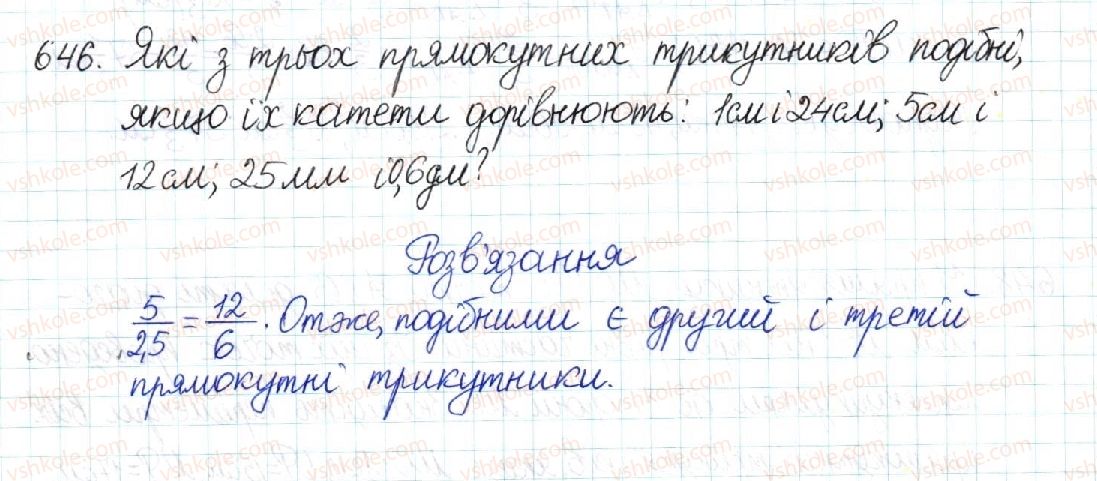 646. Які з трьох прямокутних трикутників подібні,
якщо їх катети дорівнюють: 1см і 24см; 5см і
12см; 25мм і 0,6дм?
Розв'язання
5/2,5 = 12/6. Отже, подібними є другий і третій
прямокутні трикутники.